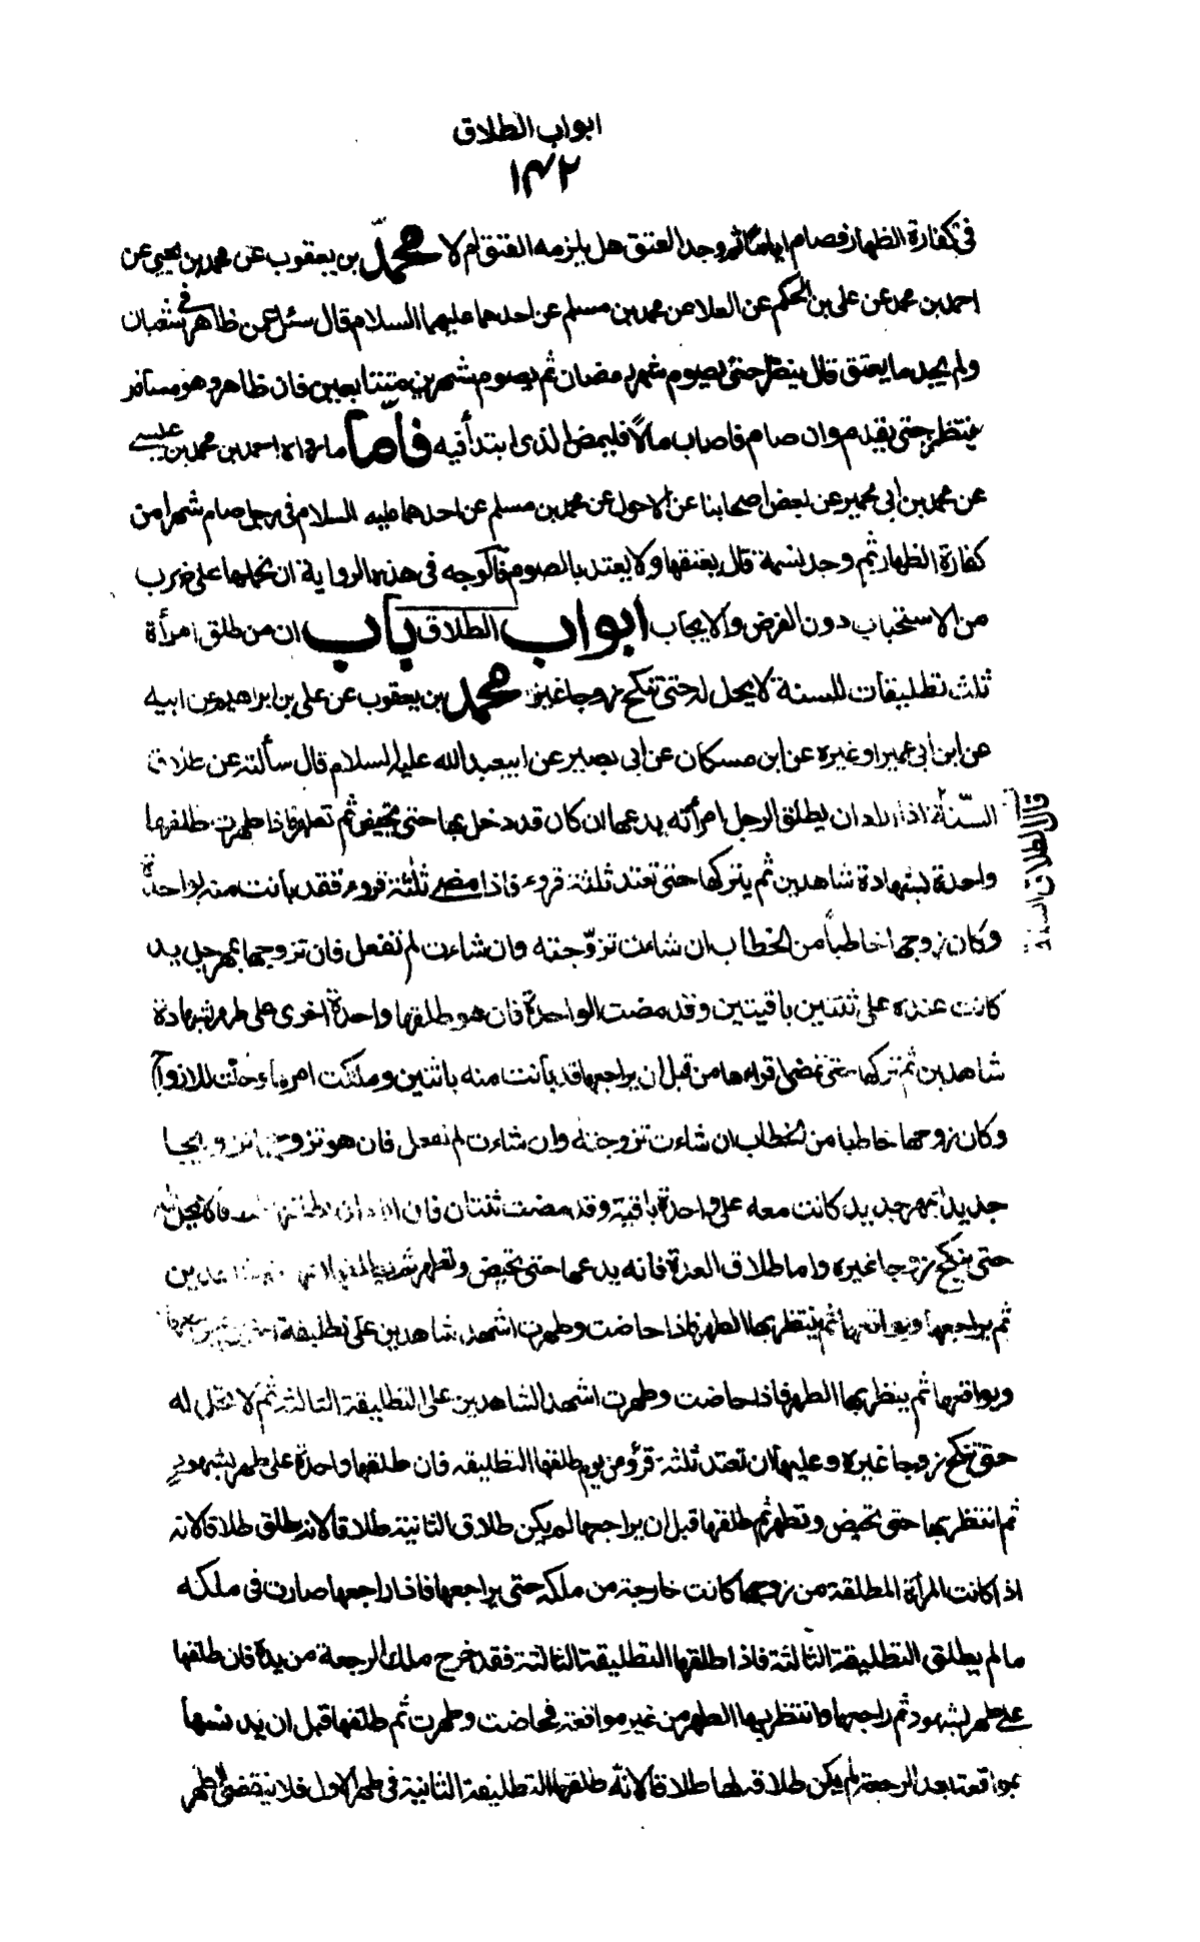 ابواب الطلاق
١٤٢
فى كفارة الظهار فصام اياما ثم وجد العتق هل يلزمه العتق ام لا محمّد بن يعقوب عن محمد بن يحيى عن
احمد بن محمد عن على بن الحكم عن العلا عن محمد بن مسلم عن احدهما عليهما السلام قال سئل عمن ظاهر فى شعبان
ولم يجد ما يعتق قال ينتظر حتى يصوم شهر رمضان ثم يصوم شهرين متتابعين فان ظاهر وهو مسافر
ينتظر حتى يقدم وان صام فاصاب مالاً فليمض الذى ابتدأ فيه فأمّا ما رواه احمد بن محمد بن عيسى
عن محمد بن ابى عمير عن بعض اصحابنا عن الاحول عن محمد بن مسلم عن احدهما عليه السلام فى رجل صام شهرا من
كفارة الظهار ثم وجد نسمة قال يعتقها ولا يعتد بالصوم فالوجه فى هذه الرواية ان نحملها على ضرب
من الاستحباب دون الفرض والايجاب ابواب الطلاق باب ان من طلق امرأة
ثلث تطليقات للسنة لا يحل له حتى تنكح زوجا غيره محمد بن يعقوب عن على بن ابراهيم عن ابيه
عن ابن ابى عمير او غيره عن ابن مسكان عن ابى بصير عن ابيعبد الله عليه السلام قال سألته عن طلاق
السّنة اذا اراد ان يطلق الرجل امرأته يدعها ان كان قد دخل بها حتى تحيض ثم تطهر فاذا طهرت طلقها
قال الطلاق السنة
واحدة بشهادة شاهدين ثم يتركها حتى تعتد ثلثة قروء فاذا مضى ثلثة قروء فقد بانت منه بواحدة
وكان زوجها خاطباً من الخطاب ان شاءت تزوّجته وان شاءت لم تفعل فان تزوجها بمهر جديد
كانت عنده على ثنتين باقيتين وقد مضت الواحدة فان هو طلقها واحدة اخرى على طهر بشهادة
شاهدين ثم تركها حتى تمضى اقراءها من قبل ان يراجعها قد بانت منه باثنين وملكت امرها وحلت للازواج
وكان زوجها خاطبا من الخطاب ان شاءت تزوجته وان شاءت لم تفعل فان هو تزوجها تزويجا
جديدا بمهر جديد كانت معه على واحدة باقية وقد مضت ثنتان فان اراد ان يطلقها فلا تحل له
حتى ينكح زوجا غيره واما طلاق العدة فانه يدعها حتى تحيض وتطهر ثم
ثم يراجعها ويواقعها ثم ينتظر بها الطهر فاذا حاضت وطهرت اشهد شاهدين على تطليقة
ويواقعها ثم ينظر بها الطهر فاذا حاضت وطهرت اشهد الشاهدين على التطليقة الثالثة ثم لا تحل له
حتى تنكح زوجا غيره وعليها ان تعتد ثلثة قرؤ من يوم طلقها التطليقه فان طلقها واحدة على طهر بشهودٍ
ثم انتظر بها حتى تحيض وتطهر ثم طلقها قبل ان يراجعها لم يكن طلاق الثانية طلاقا لانه طلق طلاقا لانه
اذا كانت المرأة المطلقة من زوجها كانت خارجة من ملكه حتى يراجعها فاذا راجعها صارت فى ملكه
ما لم يطلق التطليقة الثالثة فاذا طلقها التطليقة الثالثة فقد خرج ملك الرجعة من يده فان طلقها
على طهر بشهود ثم راجعها وانتظر بها الطهر من غير مواقعة فحاضت وطهرت ثم طلقها قبل ان يدنسها
بمواقعة بعد الرجعة لم يكن طلاقه لها طلاقا لانّه طلقها التطليقة الثانية فى طهر الاول فلا ينقضى الطهر